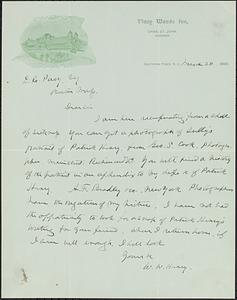 Piney Woods Inn,
March 28
Boston Mass.
Dear Sir
I am here recuperating from a attack
of sickness. You can get a photograph of Sully's
portrait of Patrick Henry from Geo. S. Cook, Photogra-
pher, Main Street Richmond Va. You will find a history
of the portrait in an appendix to my life of Patrick
Henry. New York Photographers
have the negative of my picture. I have not had
the opportunity to look for a scrap of Patrick Henry's
writing for your friend, when I return home, if
I am well enough, I will look
Yours tr
W. W. Henry.